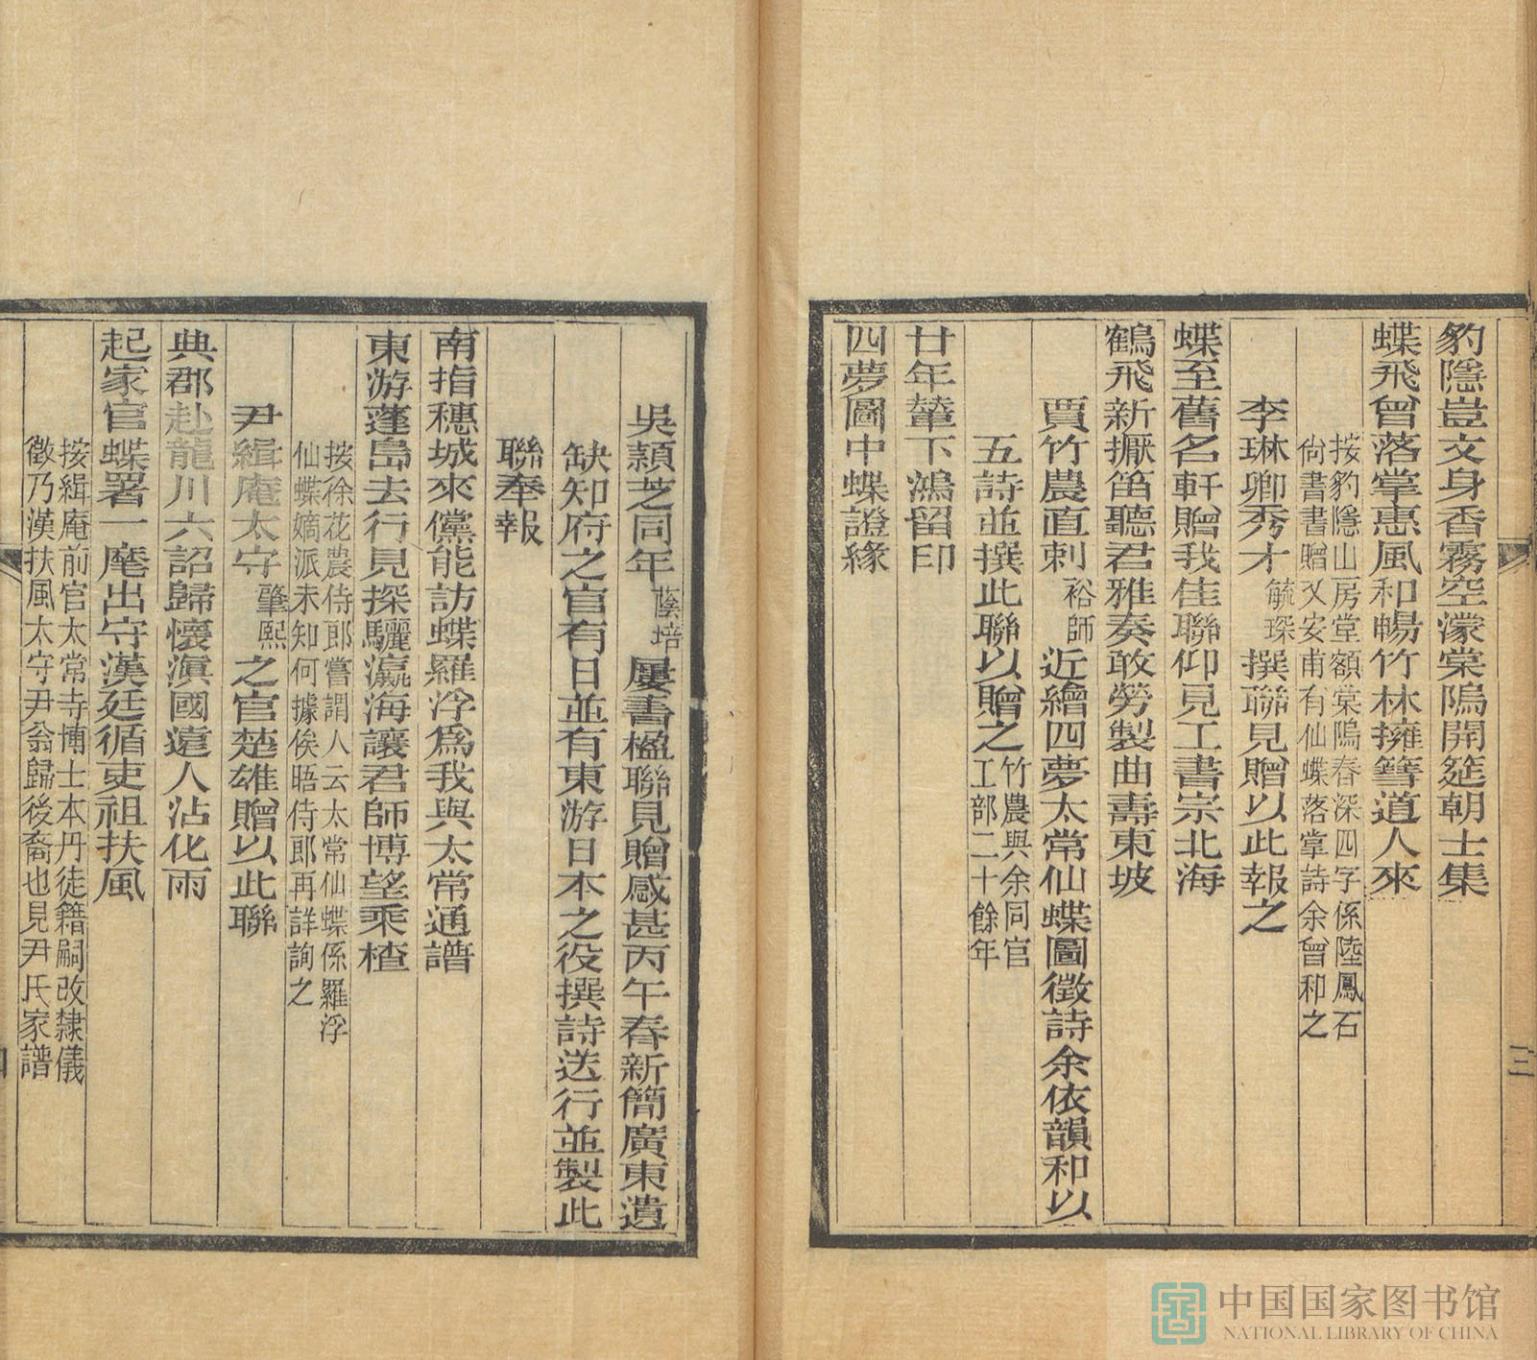 豹隱豈文身香霧空濛棠隖開筵朝士集
蝶飛曾落掌惠風和暢竹林擁篲道人來
按豹隱山房堂額棠隖春深四字係陸鳳石
尙書書贈又安甫有仙蝶落掌詩余曾和之
李琳卿秀才毓琛撰聯見贈以此報之
蝶至舊名軒贈我佳聯仰見工書宗北海
鶴飛新擫笛聽君雅奏敢勞製曲壽東坡
賈竹農直刺裕師近繪四夢太常仙蝶圖徵詩余依韻和以
五詩並撰此聯以贈之竹農與余同官
工部二十餘年
廿年輦下鴻留印
四夢圖中蝶證緣
三
吳頴芝同年蔭培屢書楹聯見贈感甚丙午春新簡廣東遺
缺知府之官有日並有東游日本之役撰詩送行並製此
聯奉報
南指穗城來儻能訪蝶羅浮爲我與太常通譜
東游蓬島去行見探驪瀛海讓君師博望乘槎
按徐花農侍郎嘗謂人云太常仙蝶係羅浮
仙蝶嫡派未知何據俟晤侍郎再詳詢之
尹緝庵太守肇熙之官楚雄贈以此聯
典郡赴龍川六詔歸懷滇國遠人沾化雨
起家官蝶署一麾出守漢廷循吏祖扶風
按緝庵前官太常寺博士本丹徒籍嗣改隸儀
徵乃漢扶風太守尹翁歸後裔也見尹氏家譜
中国国家图书馆
NATIONAL LIBRARY OF CHINA